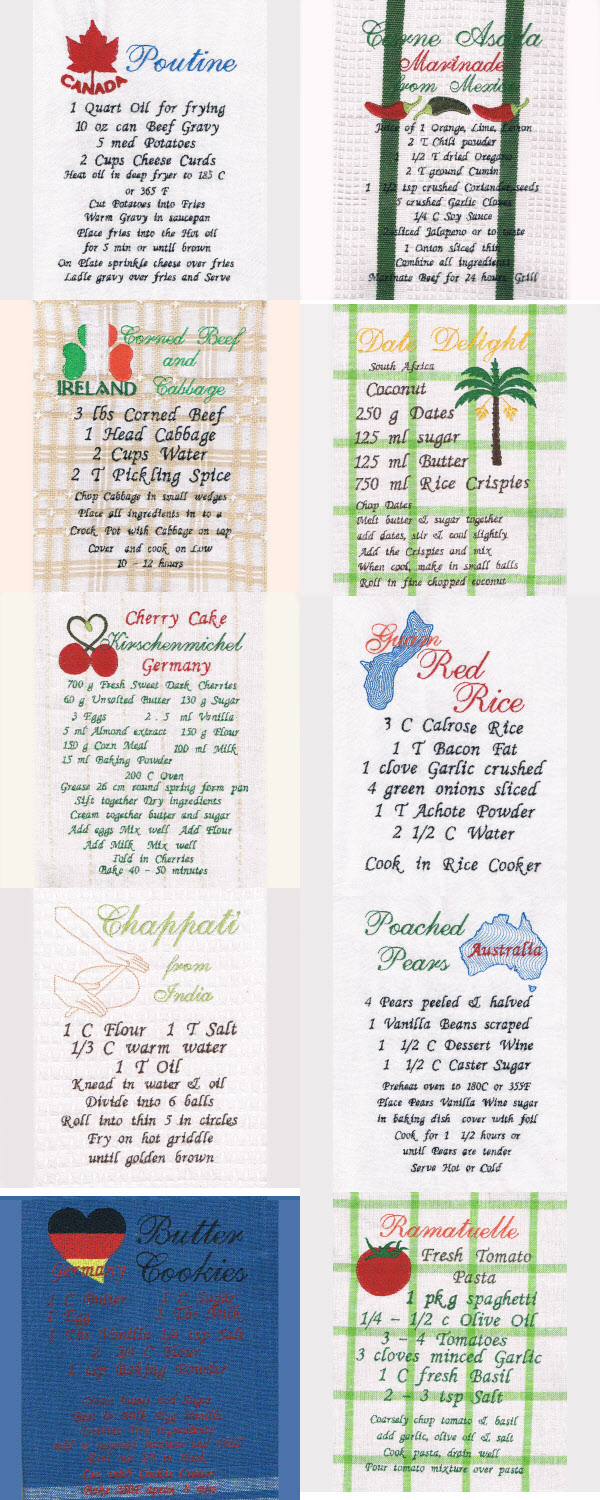 CANADA
Poutine
1 Quart Oil for frying
10 oz can Beef Gravy
5 med Potatoes
2 Cups Cheese Curds
Heat oil in deep fryer to 185 C
or 365 F
Cut Potatoes into Fries
Warm Gravy in saucepan
Place fries into the Hot oil
for 5 min or until brown
On Plate sprinkle cheese over fries
Ladle gravy over fries and Serve
Carne Asada
Marinade
from Mexico
Juice of 1 Orange, Lime, Lemon
2 T Chili powder
1 1/2 T dried Oregano
2 T ground Cumin
1 1/2 tsp crushed Coriander seeds
5 crushed Garlic Cloves
1/4 C Soy Sauce
2 sliced Jalapeno or to taste
1 Onion sliced thin
Combine all ingredients
Marinate Beef for 24 hours Grill
IRELAND
Corned Beef
and
Cabbage
3 lbs Corned Beef
1 Head Cabbage
2 Cups Water
2 T Pickling Spice
Chop Cabbage in small wedges
Place all ingredients in to a
Crock Pot with Cabbage on top
Cover and cook on Low
10 - 12 hours
Date Delight
South Africa
Coconut
250 g Dates
125 ml sugar
125 ml Butter
750 ml Rice Crispies
Chop Dates
Melt butter & sugar together
add dates, stir & cool slightly
Add the Crispies and mix
When cool, make in small balls
Roll in fine chopped coconut
Cherry Cake
Kirschenmichel
Germany
700 g Fresh Sweet Dark Cherries
60 g Unsalted Butter 130 g Sugar
3 Eggs 2.5 ml Vanilla
5 ml Almond extract 150 g Flour
150 g Corn Meal 100 ml Milk
15 ml Baking Powder
200 C Oven
Grease 26 cm round spring form pan
Sift together Dry ingredients
Cream together butter and sugar
Add eggs Mix well Add Flour
Add Milk Mix well
Told in Cherries
Bake 40 - 50 minutes
Guam
Red
Rice
3 C Calrose Rice
1 T Bacon Fat
1 clove Garlic crushed
4 green onions sliced
1 T Achote Powder
2 1/2 C Water
Cook in Rice Cooker
Chappati
from
India
1 C Flour 1 T Salt
1/3 C warm water
1 T Oil
Knead in water & oil
Divide into 6 balls
Roll into thin 5 in circles
Fry on hot griddle
until golden brown
Poached
Pears
Australia
4 Pears peeled & halved
1 Vanilla Beans scraped
1 1/2 C Dessert Wine
1 1/2 C Caster Sugar
Preheat oven to 180C or 355F
Place Pears Vanilla Wine sugar
in baking dish cover with foil
Cook for 1 1/2 hours or
until Pears are tender
Serve Hot or Cold
Germany
Butter
Cookies
1 C Butter 1 C Sugar
1 Egg 1 Tbs Milk
1 Tbs Vanilla 1/4 tsp Salt
2 3/4 C Flour
1 tsp Baking Powder
Cream Butter and Sugar
Cut with Cookie Cutter
Ramatuelle
Fresh Tomato
Pasta
1 pkg spaghetti
1/4 - 1/2 c Olive Oil
3 - 4 Tomatoes
3 cloves minced Garlic
1 C fresh Basil
2 - 3 tsp Salt
Coarsely chop tomato & basil
add garlic, olive oil & salt
Cook pasta, drain well
Pour tomato mixture over pasta